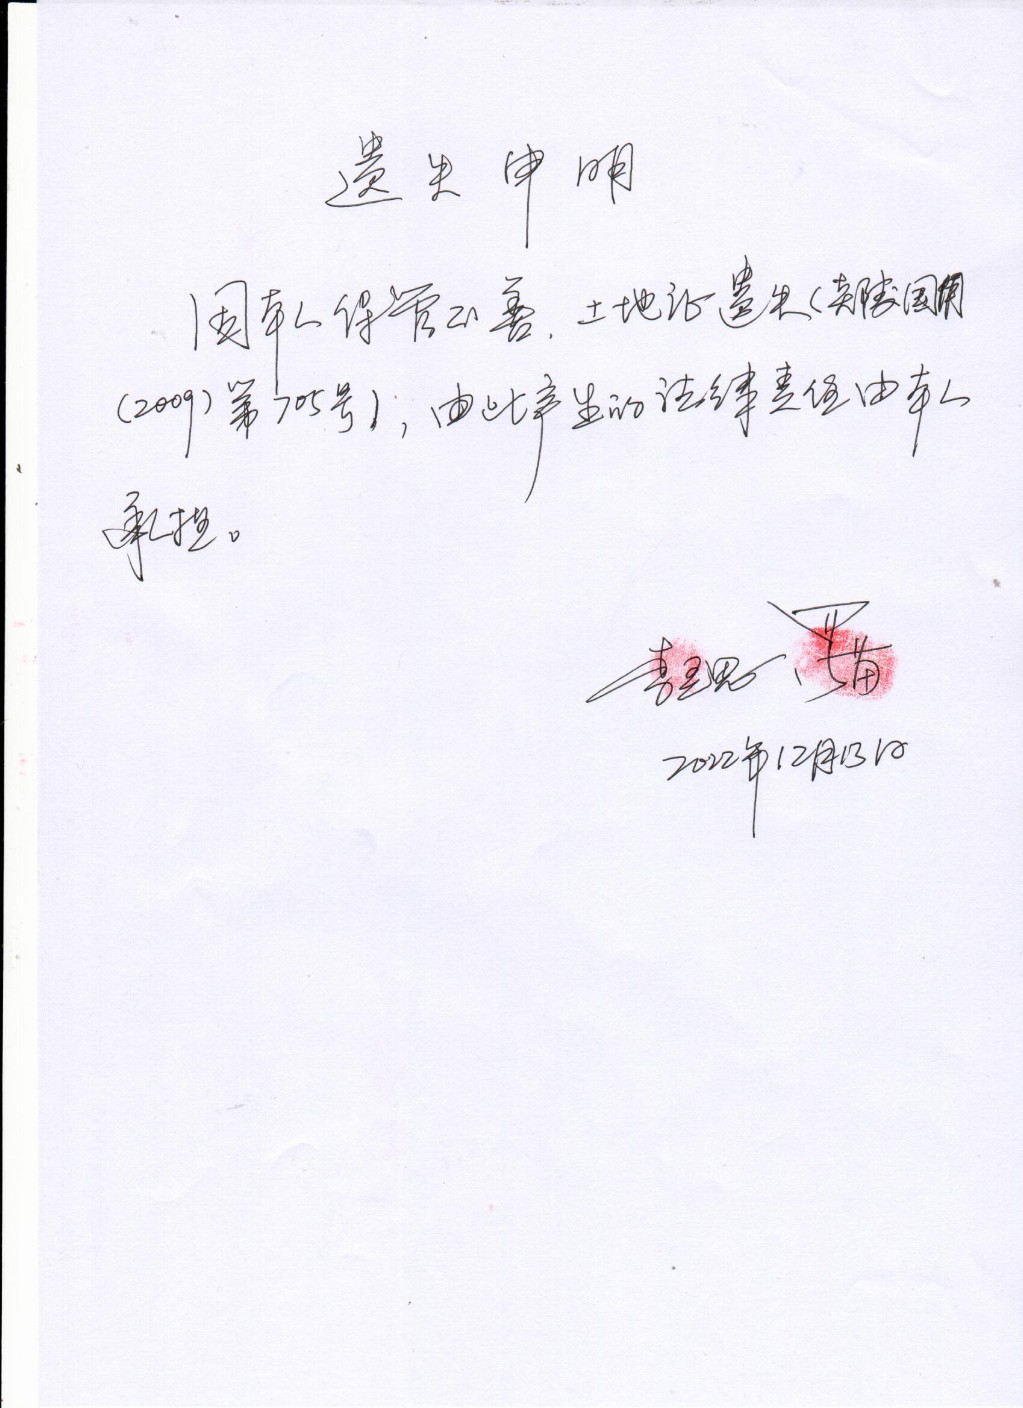 遗失申明
因本人保管不善,土地证遗失(夹胜国用
(2009)第705号),由此产生的法律责任由本人
承担。
2022年12月13日